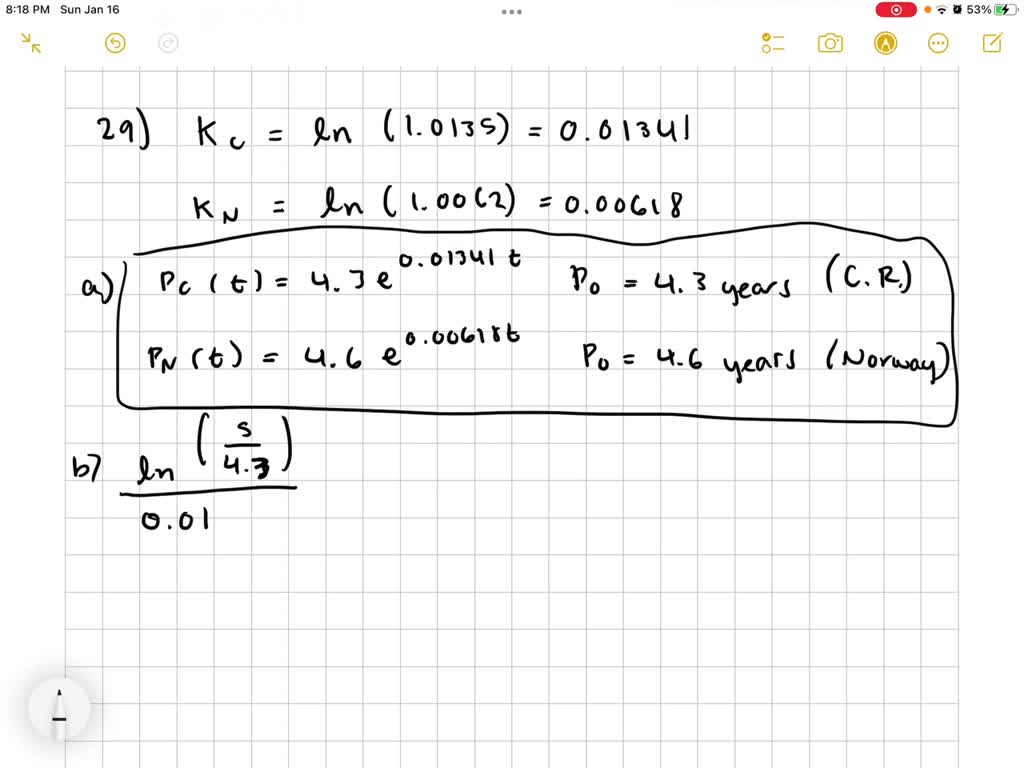 8:18 PM Sun Jan 16
53%
29) Kc = ln (1.0135) = 0.01341
KN = ln (1.0062) = 0.00618
a) Pc (t) = 4.3 e^0.01341 t P0 = 4.3 years (C.R.)
PN (t) = 4.6 e^0.00618t P0 = 4.6 years (Norway)
b) ln (5/4.3)
0.01